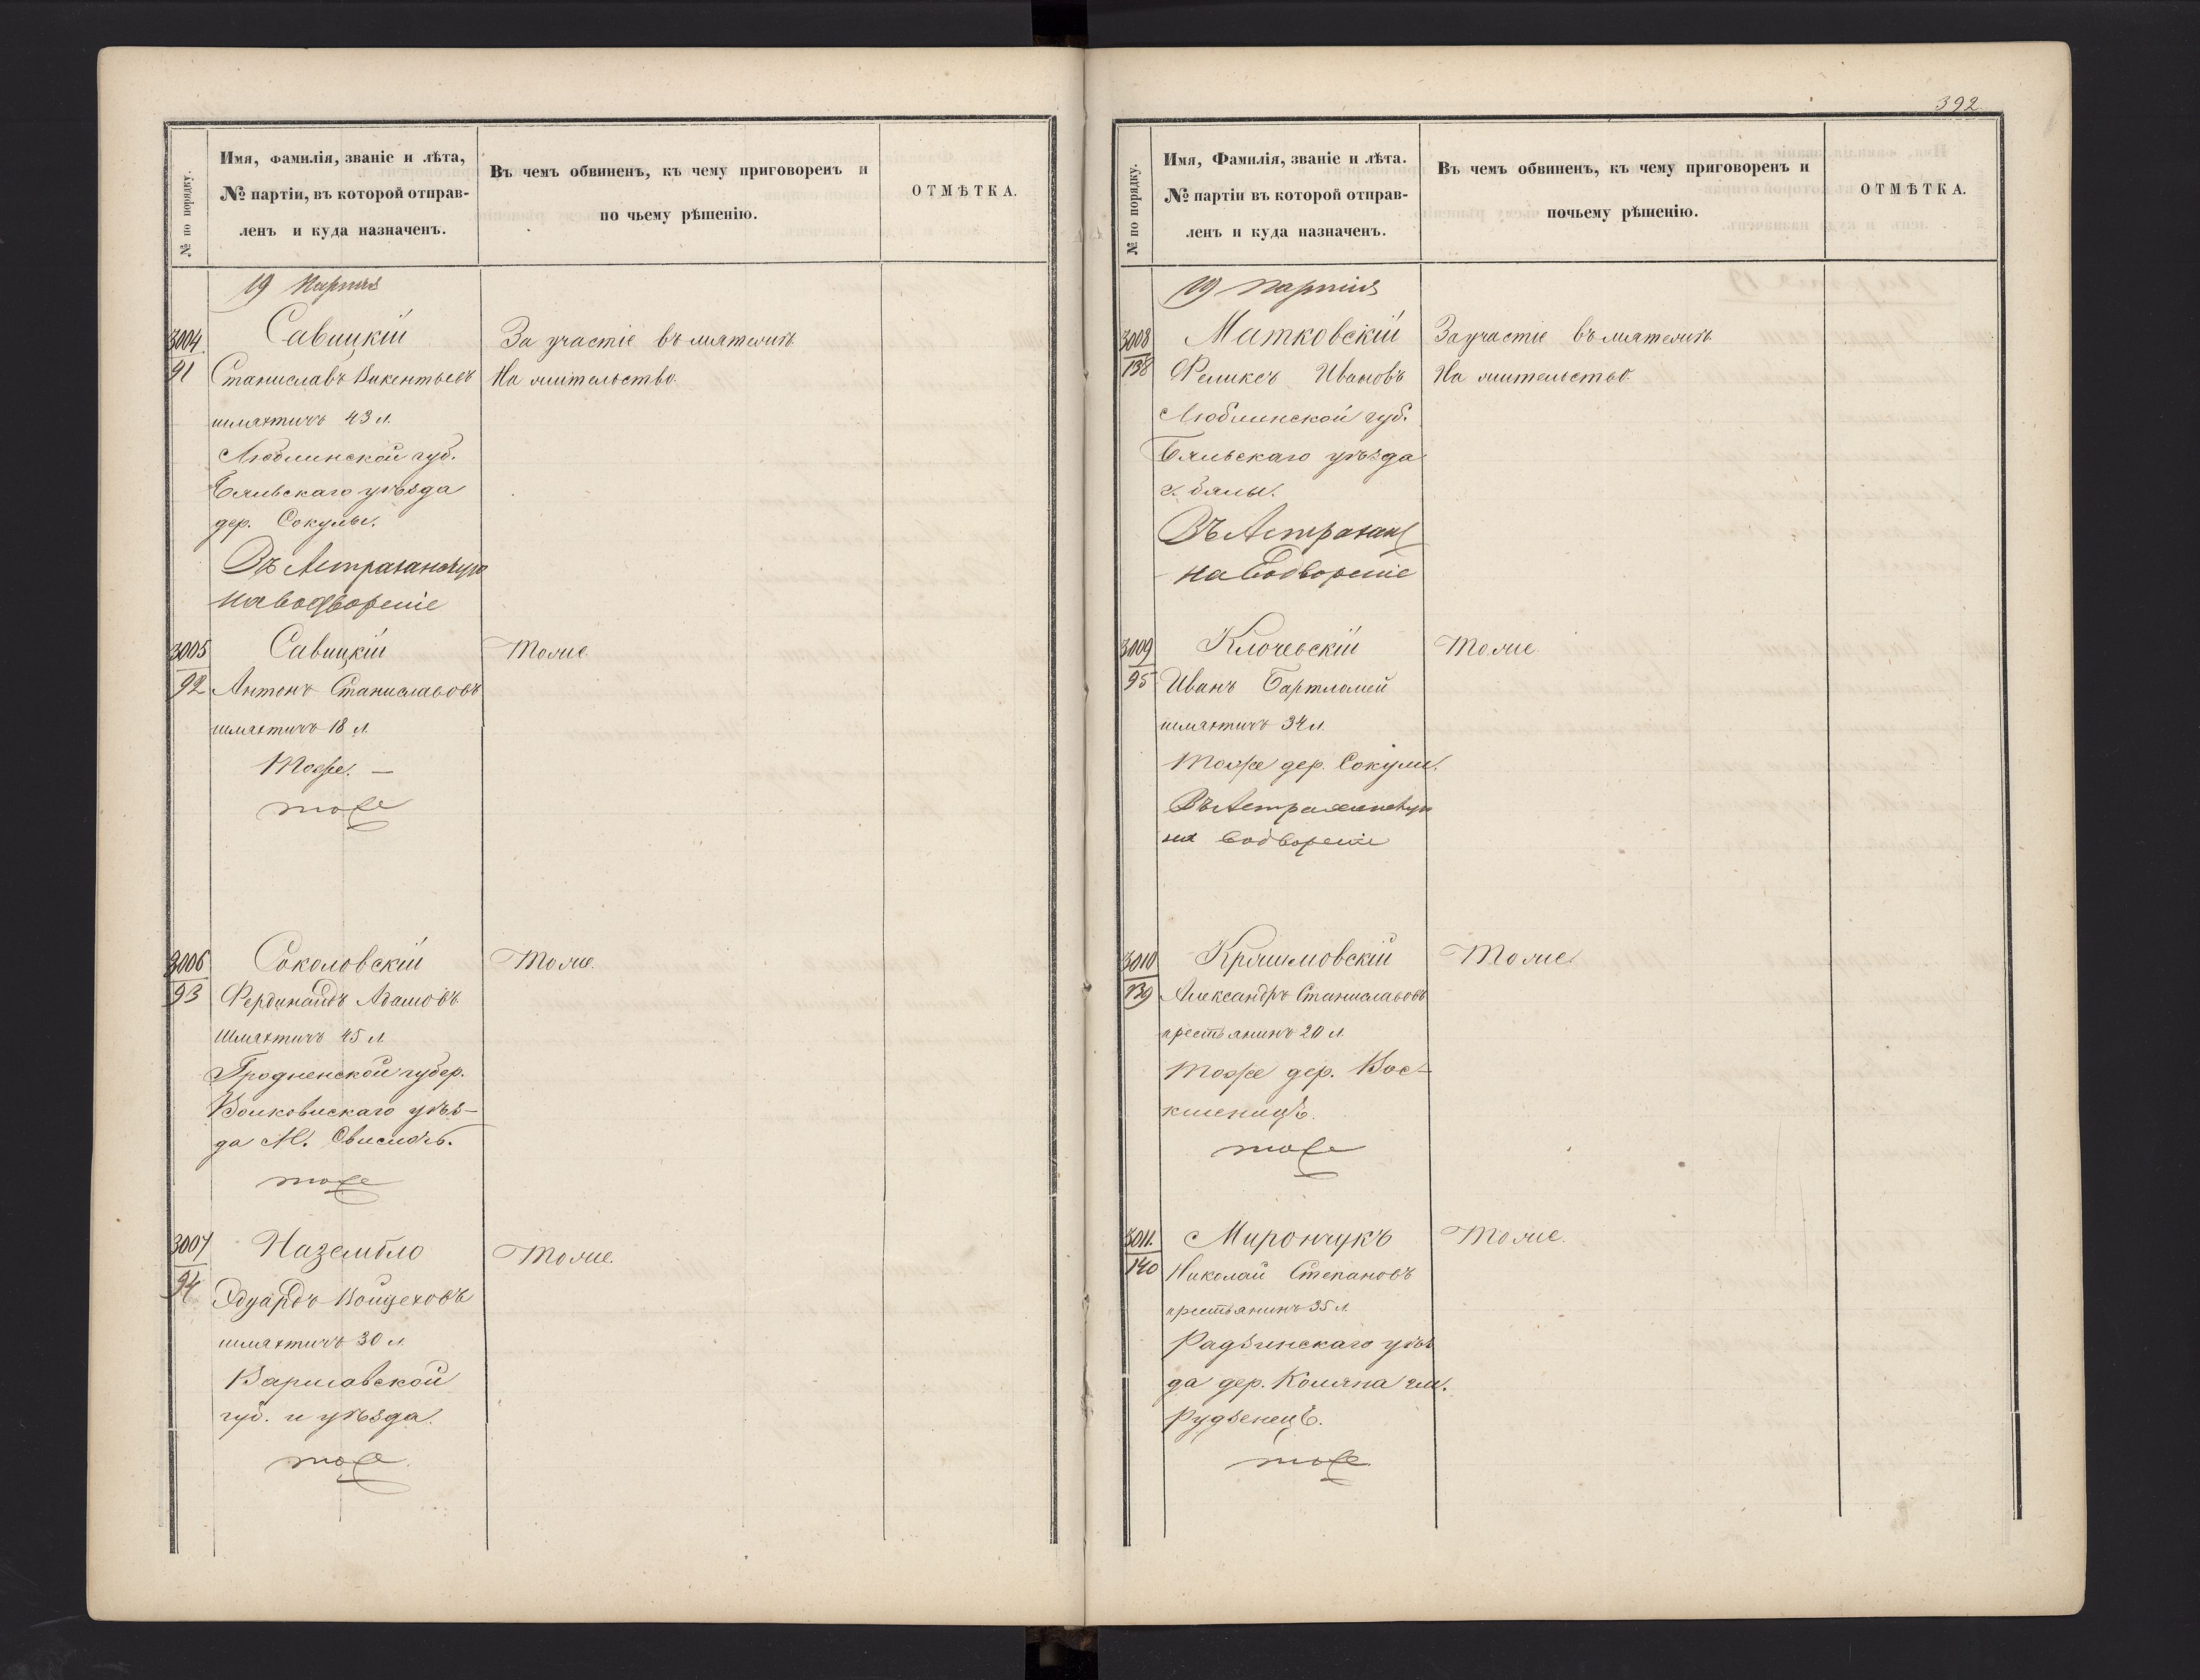 № по порядку.
Имя, Фамилія, званіе и лѣта,
№ партіи, въ которой отправ-
ленъ и куда назначенъ.
Въ чемъ обвиненъ, къ чему приговоренъ и
по чьему рѣшенію.
ОТМѢТКА.
19 Партия
3004
91
Савицкій
Станиславъ Викентьевъ
шляхтичъ 43 л.
Люблинской губ.
Бяльскаго уѣзда
дер. Сокулы.
Въ Астраханскую
на водвореніе
За участіе въ мятежѣ.
На жительство.
3005
92
Савицкій
Антонъ Станиславовъ
шляхтичъ 18 л.
Тоже. —
тоже
Тоже.
3006
93
Соколовскій
Фердинандъ Адамовъ
Шляхтичъ 45 л.
Гродненской губер.
Волковискаго уѣз-
да М. Свислочь.
тоже
Тоже.
3007
94
Назембло
Эдуардъ Войцеховъ
шляхтичъ 30 л.
Варшавской
губ. и уѣзда.
тоже.
Тоже.
392.
№ по порядку.
Имя, Фамилія, званіе и лѣта.
№ партіи въ которой отправ-
ленъ и куда назначенъ.
Въ чемъ обвиненъ, къ чему приговоренъ и
почьему рѣшенію.
ОТМѢТКА.
19 партия
3008
138
Матковскій
Феликсъ Ивановъ
Люблинской губ.
Бяльскаго уѣзда
г. Бялы.
Въ Астрахан
на водвореніе
За участіе въ мятежѣ.
На жительство.
3009
95
Ключевскій
Иванъ Бартломей
шляхтичъ 34 л.
Тоже дер. Сокули.
Въ Астраханскую
на водвореніе
Тоже.
3010
139
Кряшмовскій
Александръ Станиславовъ
крестьянинъ 20 л.
Тоже дер. Вос-
кшеницъ.
тоже
Тоже.
3011.
140
Мирончукъ
Николай Степановъ
крестьянинъ 35 л.
Радзинскаго уѣз
да дер. Коляна гм.
Рудзенецъ.
тоже.
Тоже.